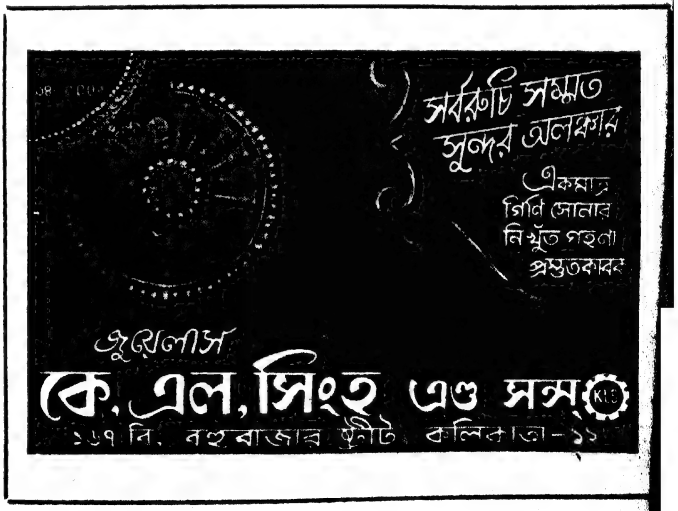 সর্বরুচি সম্মত
সুন্দর অলঙ্কার
একমাত্র
গিণি সোনার
নিখুঁত গহণা
প্রস্তুতকারক
জুয়েলার্স
কে. এল. সিংহ এণ্ড সন্স্
KLS
১৬৭ বি, বহুবাজার ষ্ট্রীট কলিকাতা-১২